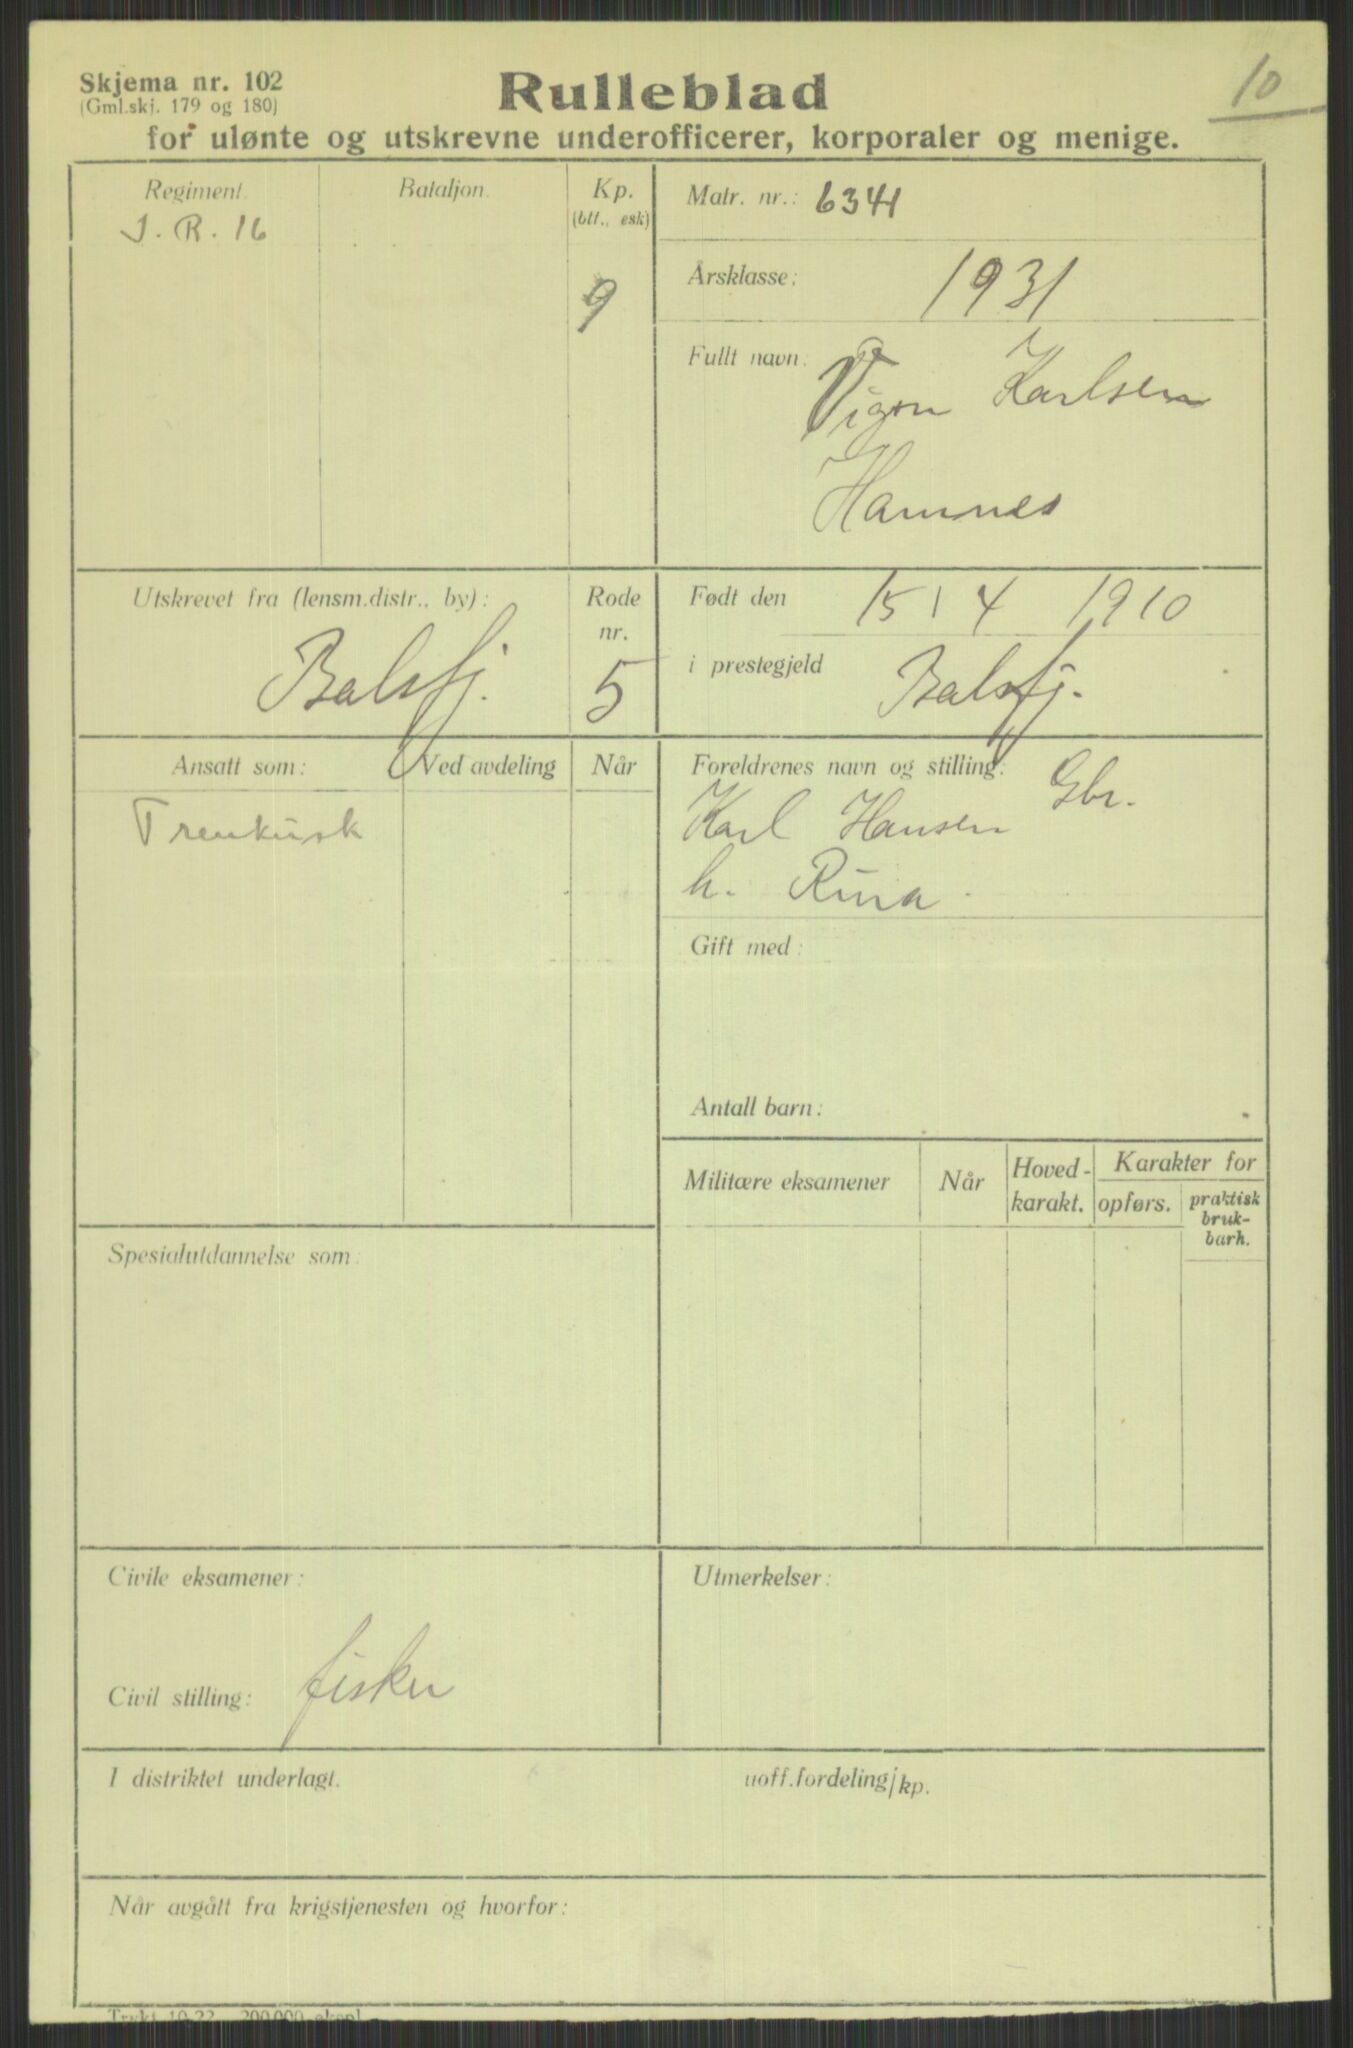 10
Skjema nr. 102
(Gml.skj. 179 og 180)
Rulleblad
for ulønte og utskrevne underofficerer, korporaler og menige.
Regiment.
J. R. 16
Bataljon.
Kp.
(btt., esk)
9
Matr. nr.: 6341
Årsklasse: 1931
Fullt navn: Karlsen
Hamnes
Utskrevet fra (lensm.distr., by):
Balsfj.
Rode
nr.
5
Født den 15 / 4 1910
i prestegjeld Balsfj.
Ansatt som:
Trenkusk
Ved avdeling
Når
Foreldrenes navn og stilling:
Gbr.
Karl Hansen
h. Rina
Gift med:
Antall barn:
Militære eksamener
Når
Hoved-
karakt.
Karakter for
opførs.
praktisk
bruk-
barh.
Spesialutdannelse som:
Civile eksamener:
Civil stilling: fisker
Utmerkelser:
I distriktet underlagt.
uoff.fordeling/kp.
Når avgått fra krigstjenesten og hvorfor:
Trykt 10-22 200.000 ekspl.